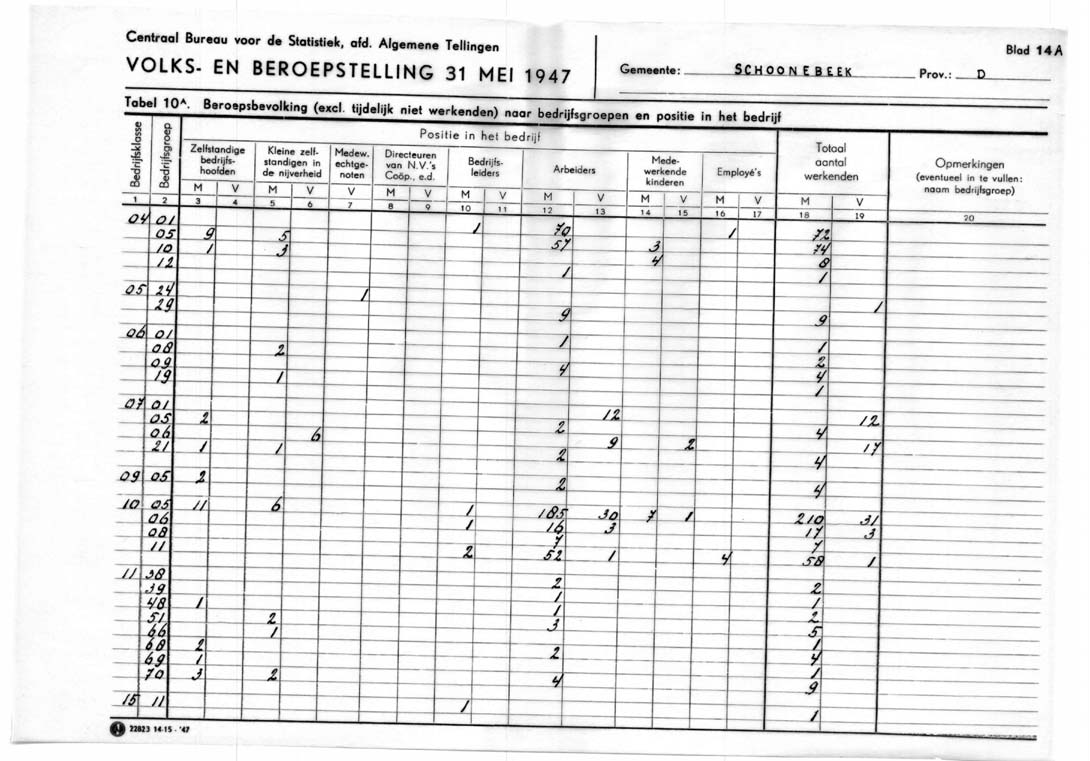 Centraal Bureau voor de Statistiek, afd. Algemene Tellingen
VOLKS- EN BEROEPSTELLING 31 MEI 1947
Gemeente: SCHOONEBEEK Prov.: D
Blad 14A
Tabel 10A. Beroepsbevolking (excl. tijdelijk niet werkenden) naar bedrijfsgroepen en positie in het bedrijf
Bedrijfsklasse
Bedrijfsgroep
Positie in het bedrijf
Zelfstandige bedrijfs-hoofden
Kleine zelf-standigen in de nijverheid
Medew. echtge-noten
Directeuren van N.V.'s Coöp., e.d.
Bedrijfs-leiders
Arbeiders
Mede-werkende kinderen
Employé's
Totaal aantal werkenden
Opmerkingen (eventueel in te vullen: naam bedrijfsgroep)
M V M V V M V M V M V M V M V M V
1 2 3 4 5 6 7 8 9 10 11 12 13 14 15 16 17 18 19 20
04 01 1 70 1 72
05 9 5 57 3 74
10 1 3 4 8
12 1 1
05 24 1 1
29 9 9
06 01 1 1
08 2 2
09 4 4
19 1 1
07 01 12 12
05 2 2 4
06 6 9 2 17
21 1 1 2 4
09 05 2 2 4
10 05 11 6 1 185 30 7 1 210 31
06 1 16 3 17 3
08 7 7
11 2 52 1 4 58 1
11 38 2 2
39 1 1
48 1 1 2
51 2 3 5
66 1 1
68 2 2 4
69 1 1
70 3 2 4 9
15 11 1 1
22823 14-15 - '47